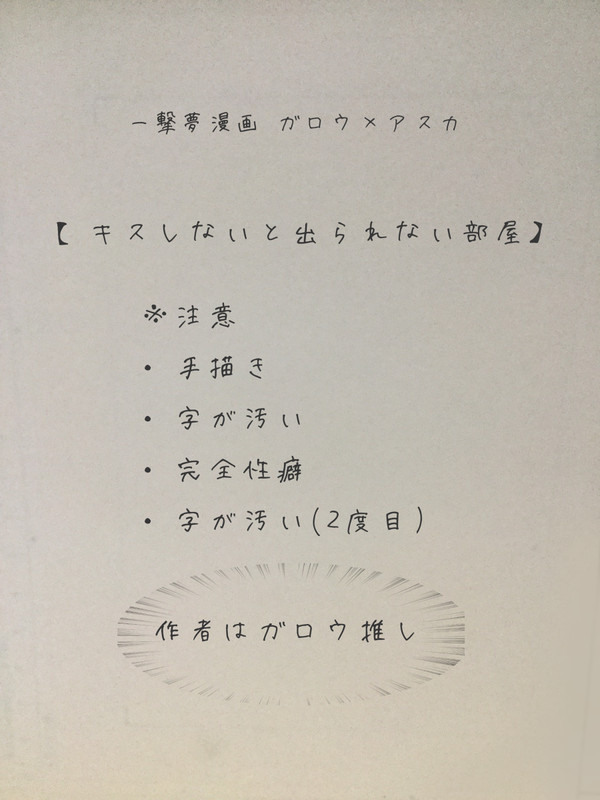 一撃夢漫画 ガロウ×アスカ
【キスしないと出られない部屋】
※注意
・手描き
・字が汚い
・完全性癖
・字が汚い(2度目)
作者はガロウ推し